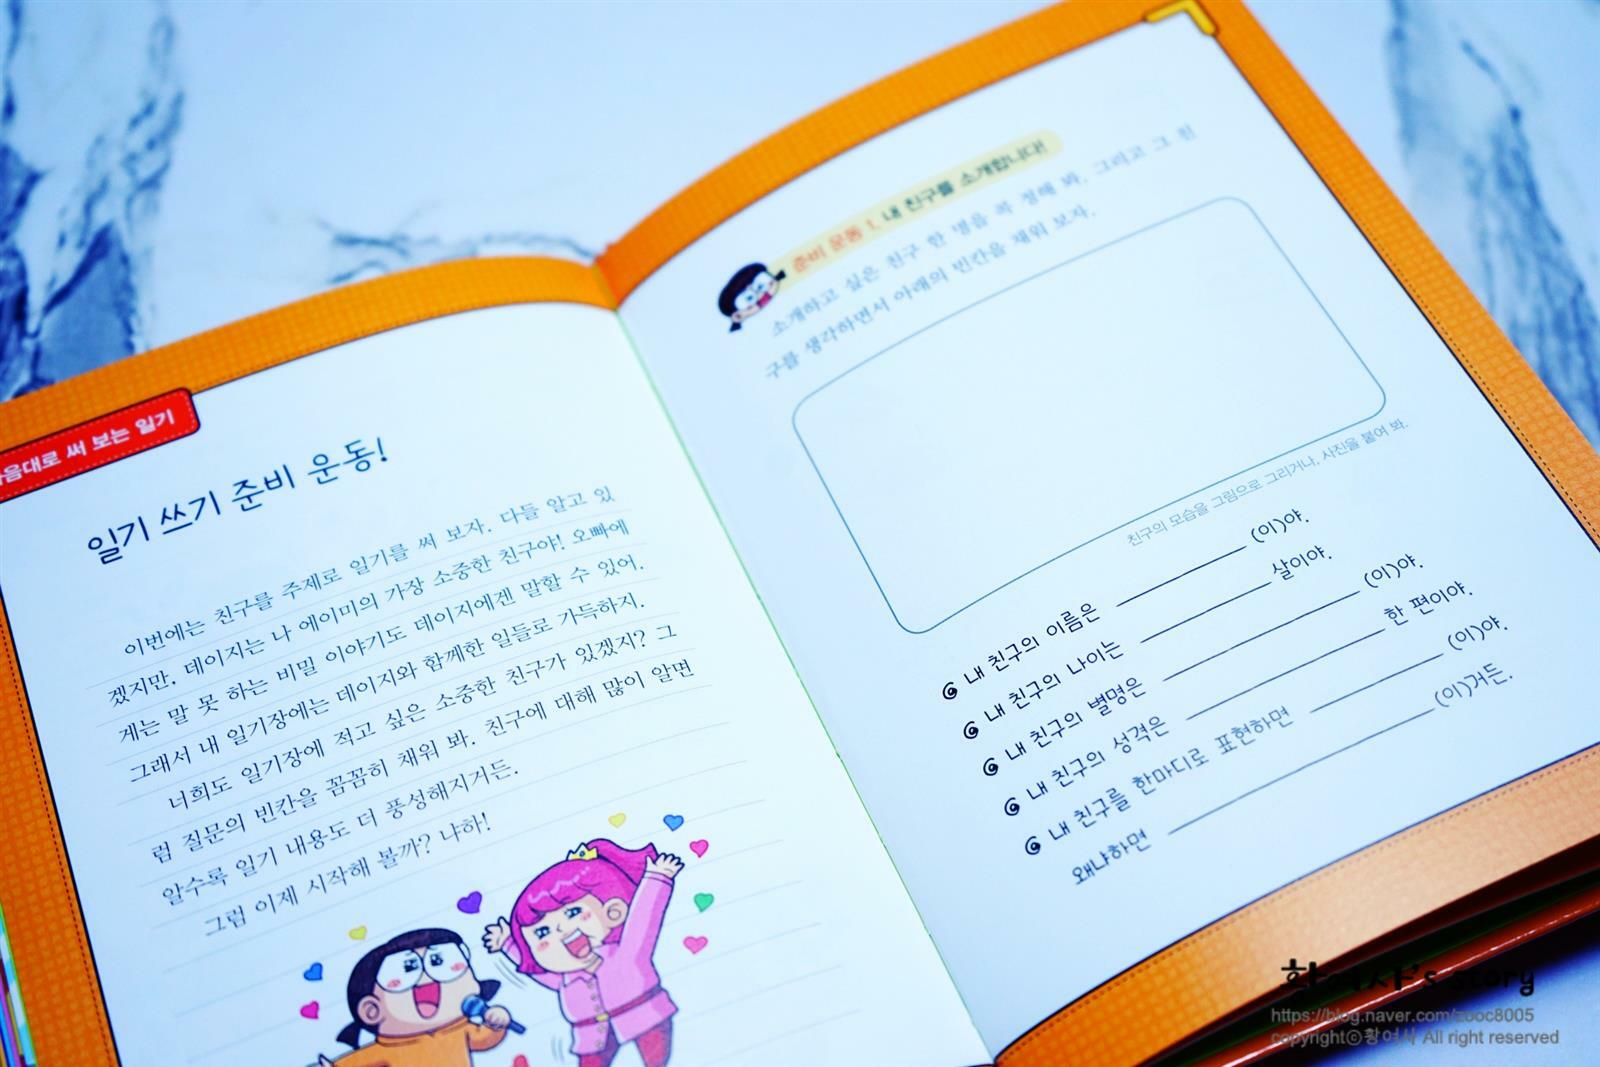 음대로 써 보는 일기
일기 쓰기 준비 운동!
이번에는 친구를 주제로 일기를 써 보자. 다들 알고 있
겠지만, 데이지는 나 에이미의 가장 소중한 친구야! 오빠에
게는 말 못 하는 비밀 이야기도 데이지에겐 말할 수 있어.
그래서 내 일기장에는 데이지와 함께한 일들로 가득하지.
너희도 일기장에 적고 싶은 소중한 친구가 있겠지? 그
럼 질문의 빈칸을 꼼꼼히 채워 봐. 친구에 대해 많이 알면
알수록 일기 내용도 더 풍성해지거든.
그럼 이제 시작해 볼까? 냐하!
준비 운동 1. 내 친구를 소개합니다!
소개하고 싶은 친구 한 명을 꼭 정해 봐. 그리고 그 친
구를 생각하면서 아래의 빈칸을 채워 보자.
친구의 모습을 그림으로 그리거나, 사진을 붙여 봐.
내 친구의 이름은 (이)야.
내 친구의 나이는 살이야.
내 친구의 별명은 (이)야.
내 친구의 성격은 한 편이야.
내 친구를 한마디로 표현하면 (이)야.
왜냐하면 (이)거든.
황여사's story
https://blog.naver.com/zooc8005
copyrightⓒ황여사 All right reserved